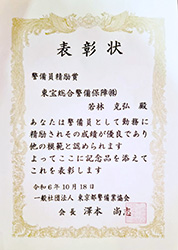 表彰状
警備員精励賞
東宝総合警備保障㈱
若林 克弘 殿
あなたは警備員として勤務に
精励されその成績が優良であり
他の模範と認められます
よってここに記念品を添えて
これを表彰します
令和6年10月18日
一般社団法人 東京都警備業協会
会長 澤本 尚志